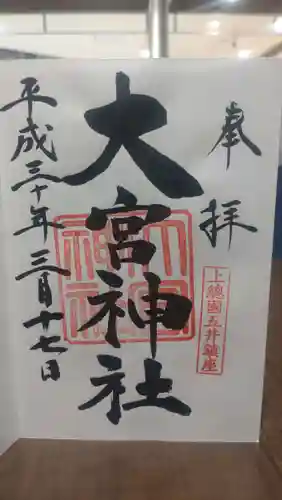 奉拝
上總國五井鎮座
大宮神社
平成三十年三月十七日